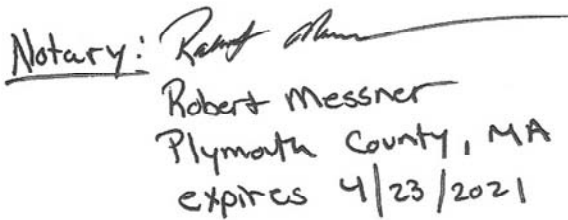 Notary:
Robert Messner
Plymouth County, MA
expires 4/23/2021